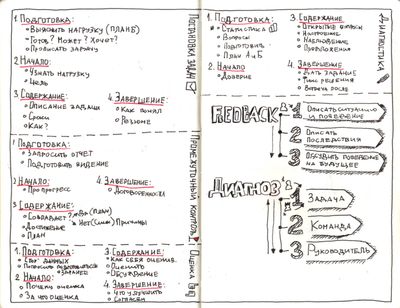 1. Подготовка:
Выяснить нагрузку (план Б)
Готов? Может? Хочет?
Прописать задачу
2. Начало:
Узнать нагрузку
Цель
3. Содержание:
Описание задачи
Сроки
Как?
4. Завершение:
Как понял
Резюме
Постановка задач
1 Подготовка:
Запросить отчет
Подготовить видение
2. Начало:
Про прогресс
4 Завершение:
Договоренности
3 Содержание:
Совпадает
Да (план)
Нет
Причины
Достижение
План
Промежуточный контроль
1. Подготовка:
Сбор данных
Попросить подготовиться
2 Начало:
Почему оценка
За что оценка
3. Содержание:
Как себя оценил
Оценить
Обсуждение
4. Завершение:
Что улучшить
Согласен
Оценка
1. Подготовка:
Статистика
Вопросы
Подготовить
План А и Б
2. Начало
Доверие
3. Содержание
Открытые вопросы
Наблюдение
Предположения
4. Завершение
Дать задание
Встреча после
Диагностика
Feedback
1 Описать ситуацию и поведение
2 Описать последствия
3 Обсудить поведение на будущее
Диагноз
1 Задача
2 Команда
3 Руководитель